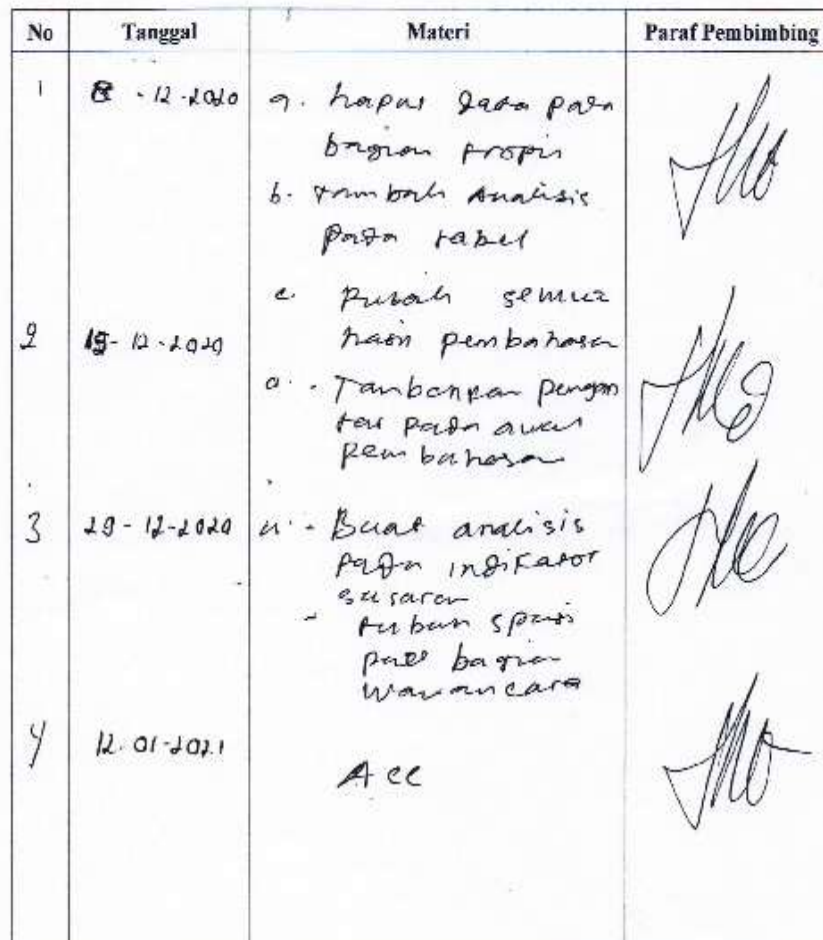 No Tanggal Materi Paraf Pembimbing
1 8 - 12 - 2020 a. hapus data pada
bagian
b. tambah analisis
pada tabel
c. Rubah semua
2 15 - 12 - 2020 hasil pembahasan
a. - Tambahkan pengan
tar pada awal
pembahasan
3 29 - 12 - 2020 a. - Buat analisis
pada indikator
sasaran
- rubah spasi
pada bagian
wawancara
4 12. 01 - 2021
Acc